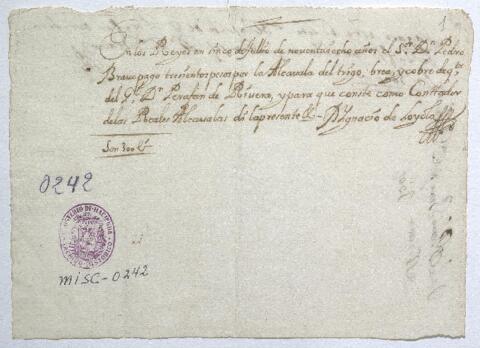 1
En los Reyes en sinco de Jullio de noventa y ocho años el Sr. Dn. Pedro
Bravo pago tresientos pesos por la Alcavala del trigo, brea, y cobre de qta
del Gl. Dn. Perafan de Rivera, y para que conste como Contador
de las Reales Alcavalas di la presente Dn. Ygnacio de Loyola
Son 300 ps
0242
MINISTERIO DE HACIENDA
ARCHIVO HISTORICO
MISC-0242